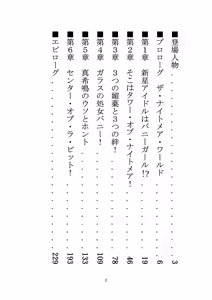 ■登場人物 . . . . . . . . . . 3
■プロローグ ザ・ナイトメア・ワールド . . . 6
■第1章 新星アイドルはバニーガール!? . . . 19
■第2章 そこはタワー・オブ・ナイトメア! . . . 46
■第3章 3つの媚薬と3つの絆! . . . . . 78
■第4章 ガラスの処女バニー! . . . . . 109
■第5章 真希鳴のウソとホント . . . . . 133
■第6章 センター・オブ・ラ・ビット! . . . 193
■エピローグ . . . . . . . . . . 229
2